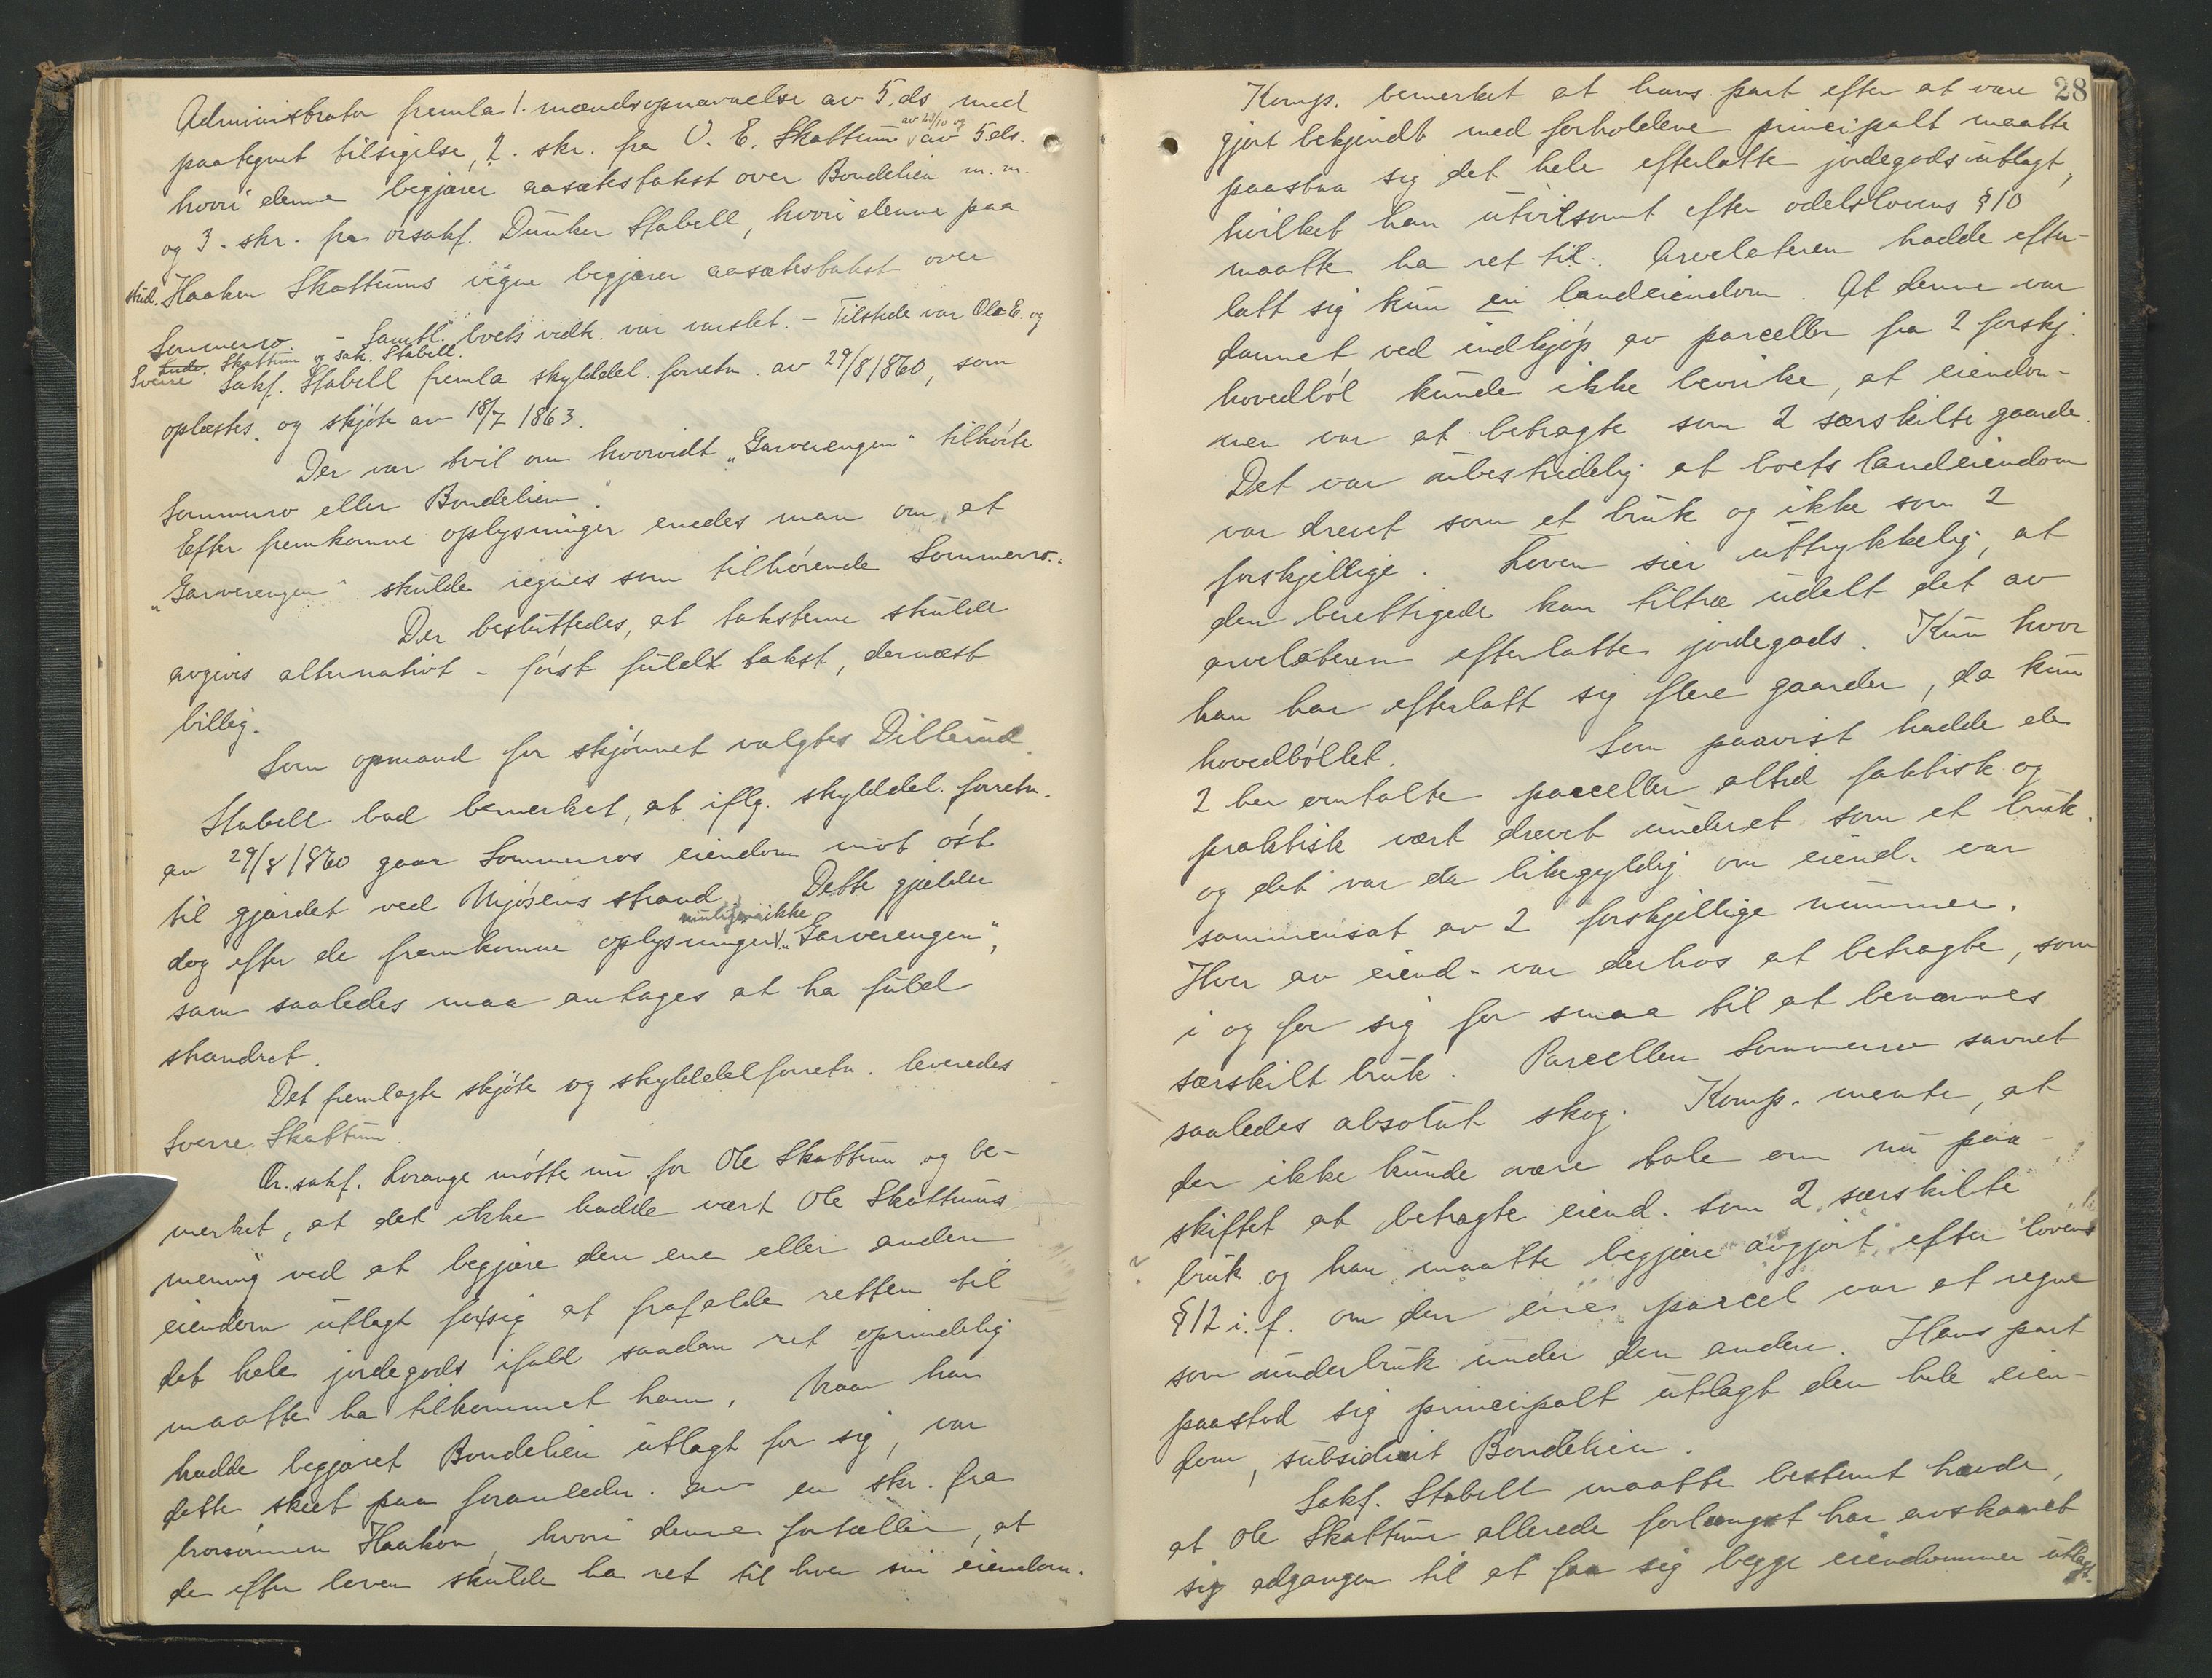 Administrator fremla 1. mændsopnævnelse av 5. ds med
paategnet tilsigelse, 2. skr. fra O. E. Skattum av 23/10 og av 5 ds.
hvori denne begjærer aasætestakst over Bondelien m. m.
og 3. skr. fra orsakf. Dunker Stabell, hvori denne paa
stud. Haakon Skattums vegne begjærer aasætestakst over
Sommerro. - Samtl. boets vedk. var varslet. - Tilstede var Ole E. og
Sverre Skattum og sak. Stabell.
Sakf. Stabell fremla skylddel. forretn. av 29/8 1860, som
oplæstes og skjøte av 18/7 1863.
Der var tvil om hvorvidt „Garverengen" tilhørte
Sommerro eller Bondelien.
Efter fremkomne oplysninger enedes man om, at
„Garverengen" skulde regnes som tilhørende Sommerro.
Der besluttedes, at taksterne skulde
avgives alternativt - først fuld takst, dernæst
billig.
Som opmand for skjønnet valgtes Dillerud.
Stabell bad bemerket, at iflg. skylddel. forretn.
av 29/8 1860 gaar Sommerros eiendom mot øst
til gjærdet ved Mjøsens strand. Dette gjælder
dog efter de fremkomne oplysninger muligens ikke „Garverengen",
som saaledes maa antages at ha fuld
strandret.
Det fremlagte skjøte og skylddelforretn. leveredes
Sverre Skattum.
Or. sakf. Lorange møtte nu for Ole Skattum og be-
merket, at det ikke hadde vært Ole Skattums
mening ved at begjære den ene eller anden
eiendom utlagt for sig at frafalde retten til
det hele jordegods ifald saadan ret oprindelig
maatte ha tilkommet ham. Naar han
hadde begjæret Bondelien utlagt for sig, var
dette skeet paa foranledn. av en skr. fra
brorsønnen Haakon, hvori denne fortæller, at
de efter loven skulde ha ret til hver sin eiendom.
28
Komp. bemerket at hans part efter at være
gjort bekjendt med forholdene principalt maatte
paastaa sig det hele efterlatte jordegods utlagt,
hvilket han utvilsomt efter odelslovens § 10
maatte ha ret til. Arvelateren hadde efter-
latt sig kun en landeiendom. At denne var
dannet ved indkjøp av parceller fra 2 forskj.
hovedbøl kunde ikke bevirke, at eiendom-
men var at betragte som 2 særskilte gaarde.
Det var ubestridelig at boets landeiendom
var drevet som et bruk og ikke som 2
forskjellige. Loven sier uttrykkelig, at
den berettigede kan tiltræ udelt det av
arvelateren efterlatte jordegods. Kun hvor
han har efterlatt sig flere gaarder, da kun
hovedbøllet. Som paavist hadde de
2 her omtalte parceller altid faktisk og
praktisk vært drevet underet som et bruk.
og det var da likegyldig om eiend. var
sammensat av 2 forskjellige nummer.
Hver av eiend. var derhos at betragte, som
i og for sig for smaa til at benævnes
særskilt bruk. Parcellen Sommerro savnet
saaledes absolut skog. Komp. mente, at
der ikke kunde være tale om nu paa
skiftet at betragte eiend. som 2 særskilte
bruk og han maatte begjære avgjort efter lovens
§ 12 i. f. om den eine parcel var at regne
som underbruk under den anden. Hans part
paastod sig principalt utlagt den hele eien-
dom, subsidiært Bondelien.
Sakf. Stabell maatte bestemt hævde,
at Ole Skattum allerede forlængst har avskaaret
sig adgangen til at faa sig begge eiendommer utlagt.